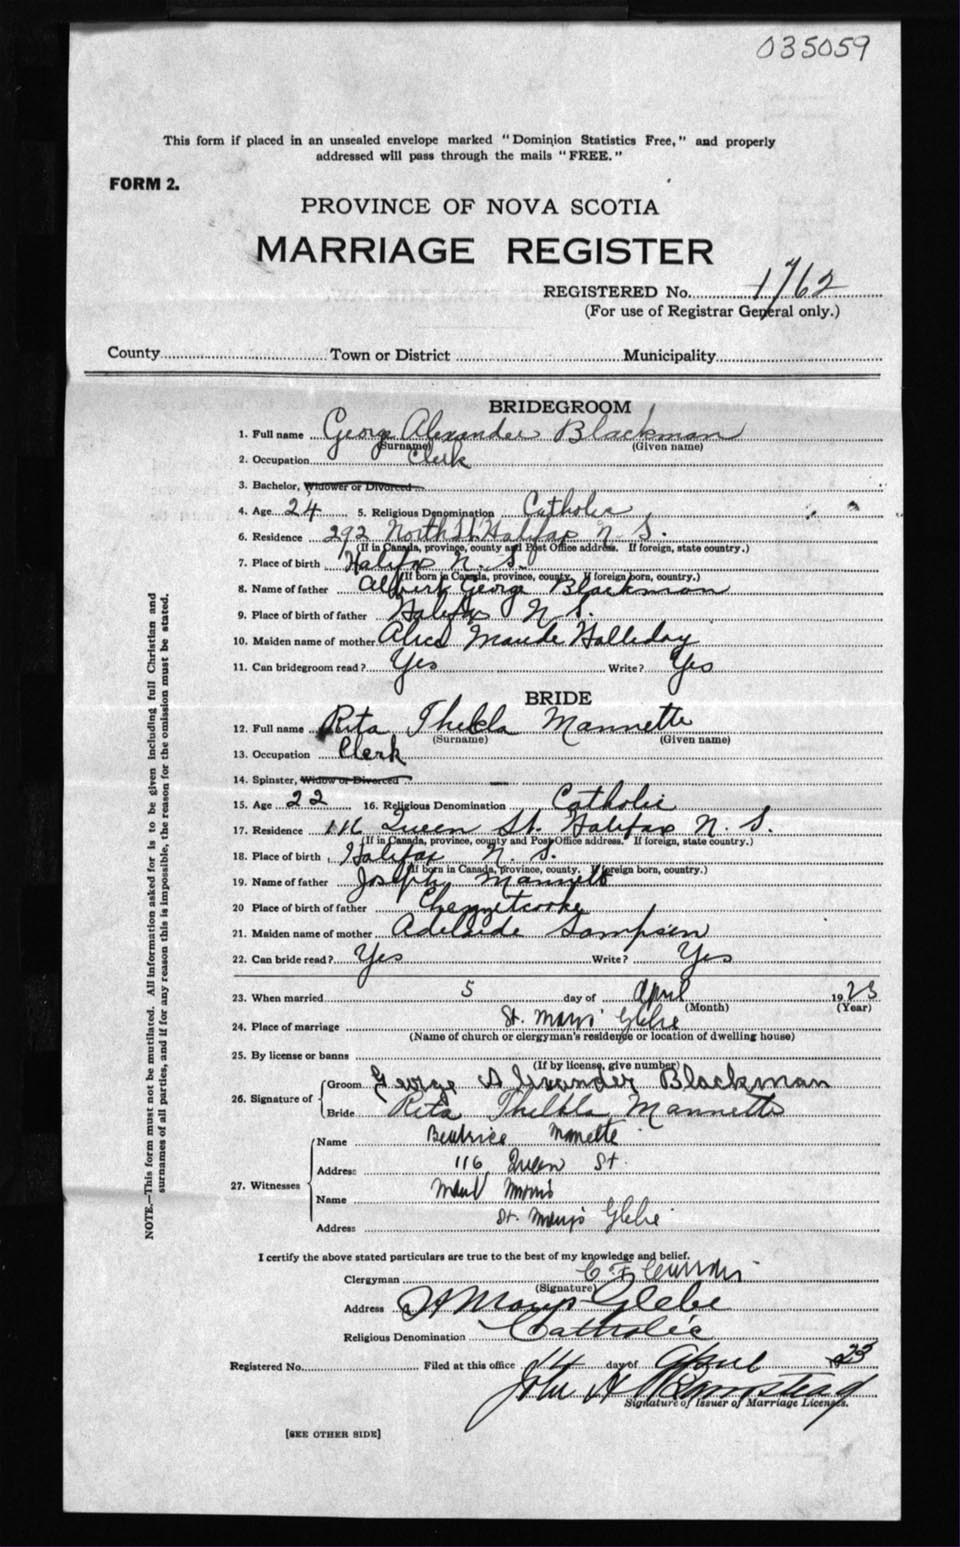 035059
This form if placed in an unsealed envelope marked "Dominion Statistics Free," and properly
addressed will pass through the mails "FREE."
FORM 2.
PROVINCE OF NOVA SCOTIA
MARRIAGE REGISTER
REGISTERED No. 1762
(For use of Registrar General only.)
County Town or District Municipality
BRIDEGROOM
1. Full name George Alexander Blackman
(Surname) (Given name)
2. Occupation Clerk
3. Bachelor, Widower or Divorced
4. Age 24 5. Religious Denomination Catholic
6. Residence 292 North St. Halifax N. S.
(If in Canada, province, county and Post Office address. If foreign, state country.)
7. Place of birth Halifax N. S.
(If born in Canada, province, county. If foreign born, country.)
8. Name of father Albert George Blackman
9. Place of birth of father Halifax N. S.
10. Maiden name of mother Alice Maude Halliday
11. Can bridegroom read? Yes Write? Yes
BRIDE
12. Full name Rita Thekla Mannette
(Surname) (Given name)
13. Occupation Clerk
14. Spinster, Widow or Divorced
15. Age 22 16. Religious Denomination Catholic
17. Residence 116 Queen St. Halifax N. S.
(If in Canada, province, county and Post Office address. If foreign, state country.)
18. Place of birth Halifax N. S.
(If born in Canada, province, county. If foreign born, country.)
19. Name of father Joseph Mannette
20 Place of birth of father Chezzetcooke
21. Maiden name of mother Adelaide Sampson
22. Can bride read? Yes Write? Yes
23. When married 5 day of April 1923
(Month) (Year)
24. Place of marriage St. Marys' Glebe
(Name of church or clergyman's residence or location of dwelling house)
25. By license or banns
(If by license, give number)
26. Signature of
Groom George Alexander Blackman
Bride Rita Thekla Mannette
27. Witnesses
Name Beatrice Manette
Address 116 Queen St.
Name Morris
Address St. Mary's Glebe
I certify the above stated particulars are true to the best of my knowledge and belief.
Clergyman C F Curran
(Signature)
Address St Marys Glebe
Religious Denomination Catholic
Registered No. Filed at this office 14 day of April 1923
John A
Signature of Issuer of Marriage Licenses.
[SEE OTHER SIDE]
NOTE.—This form must not be mutilated. All information asked for is to be given including full Christian and
surnames of all parties, and if for any reason this is impossible, the reason for the omission must be stated.